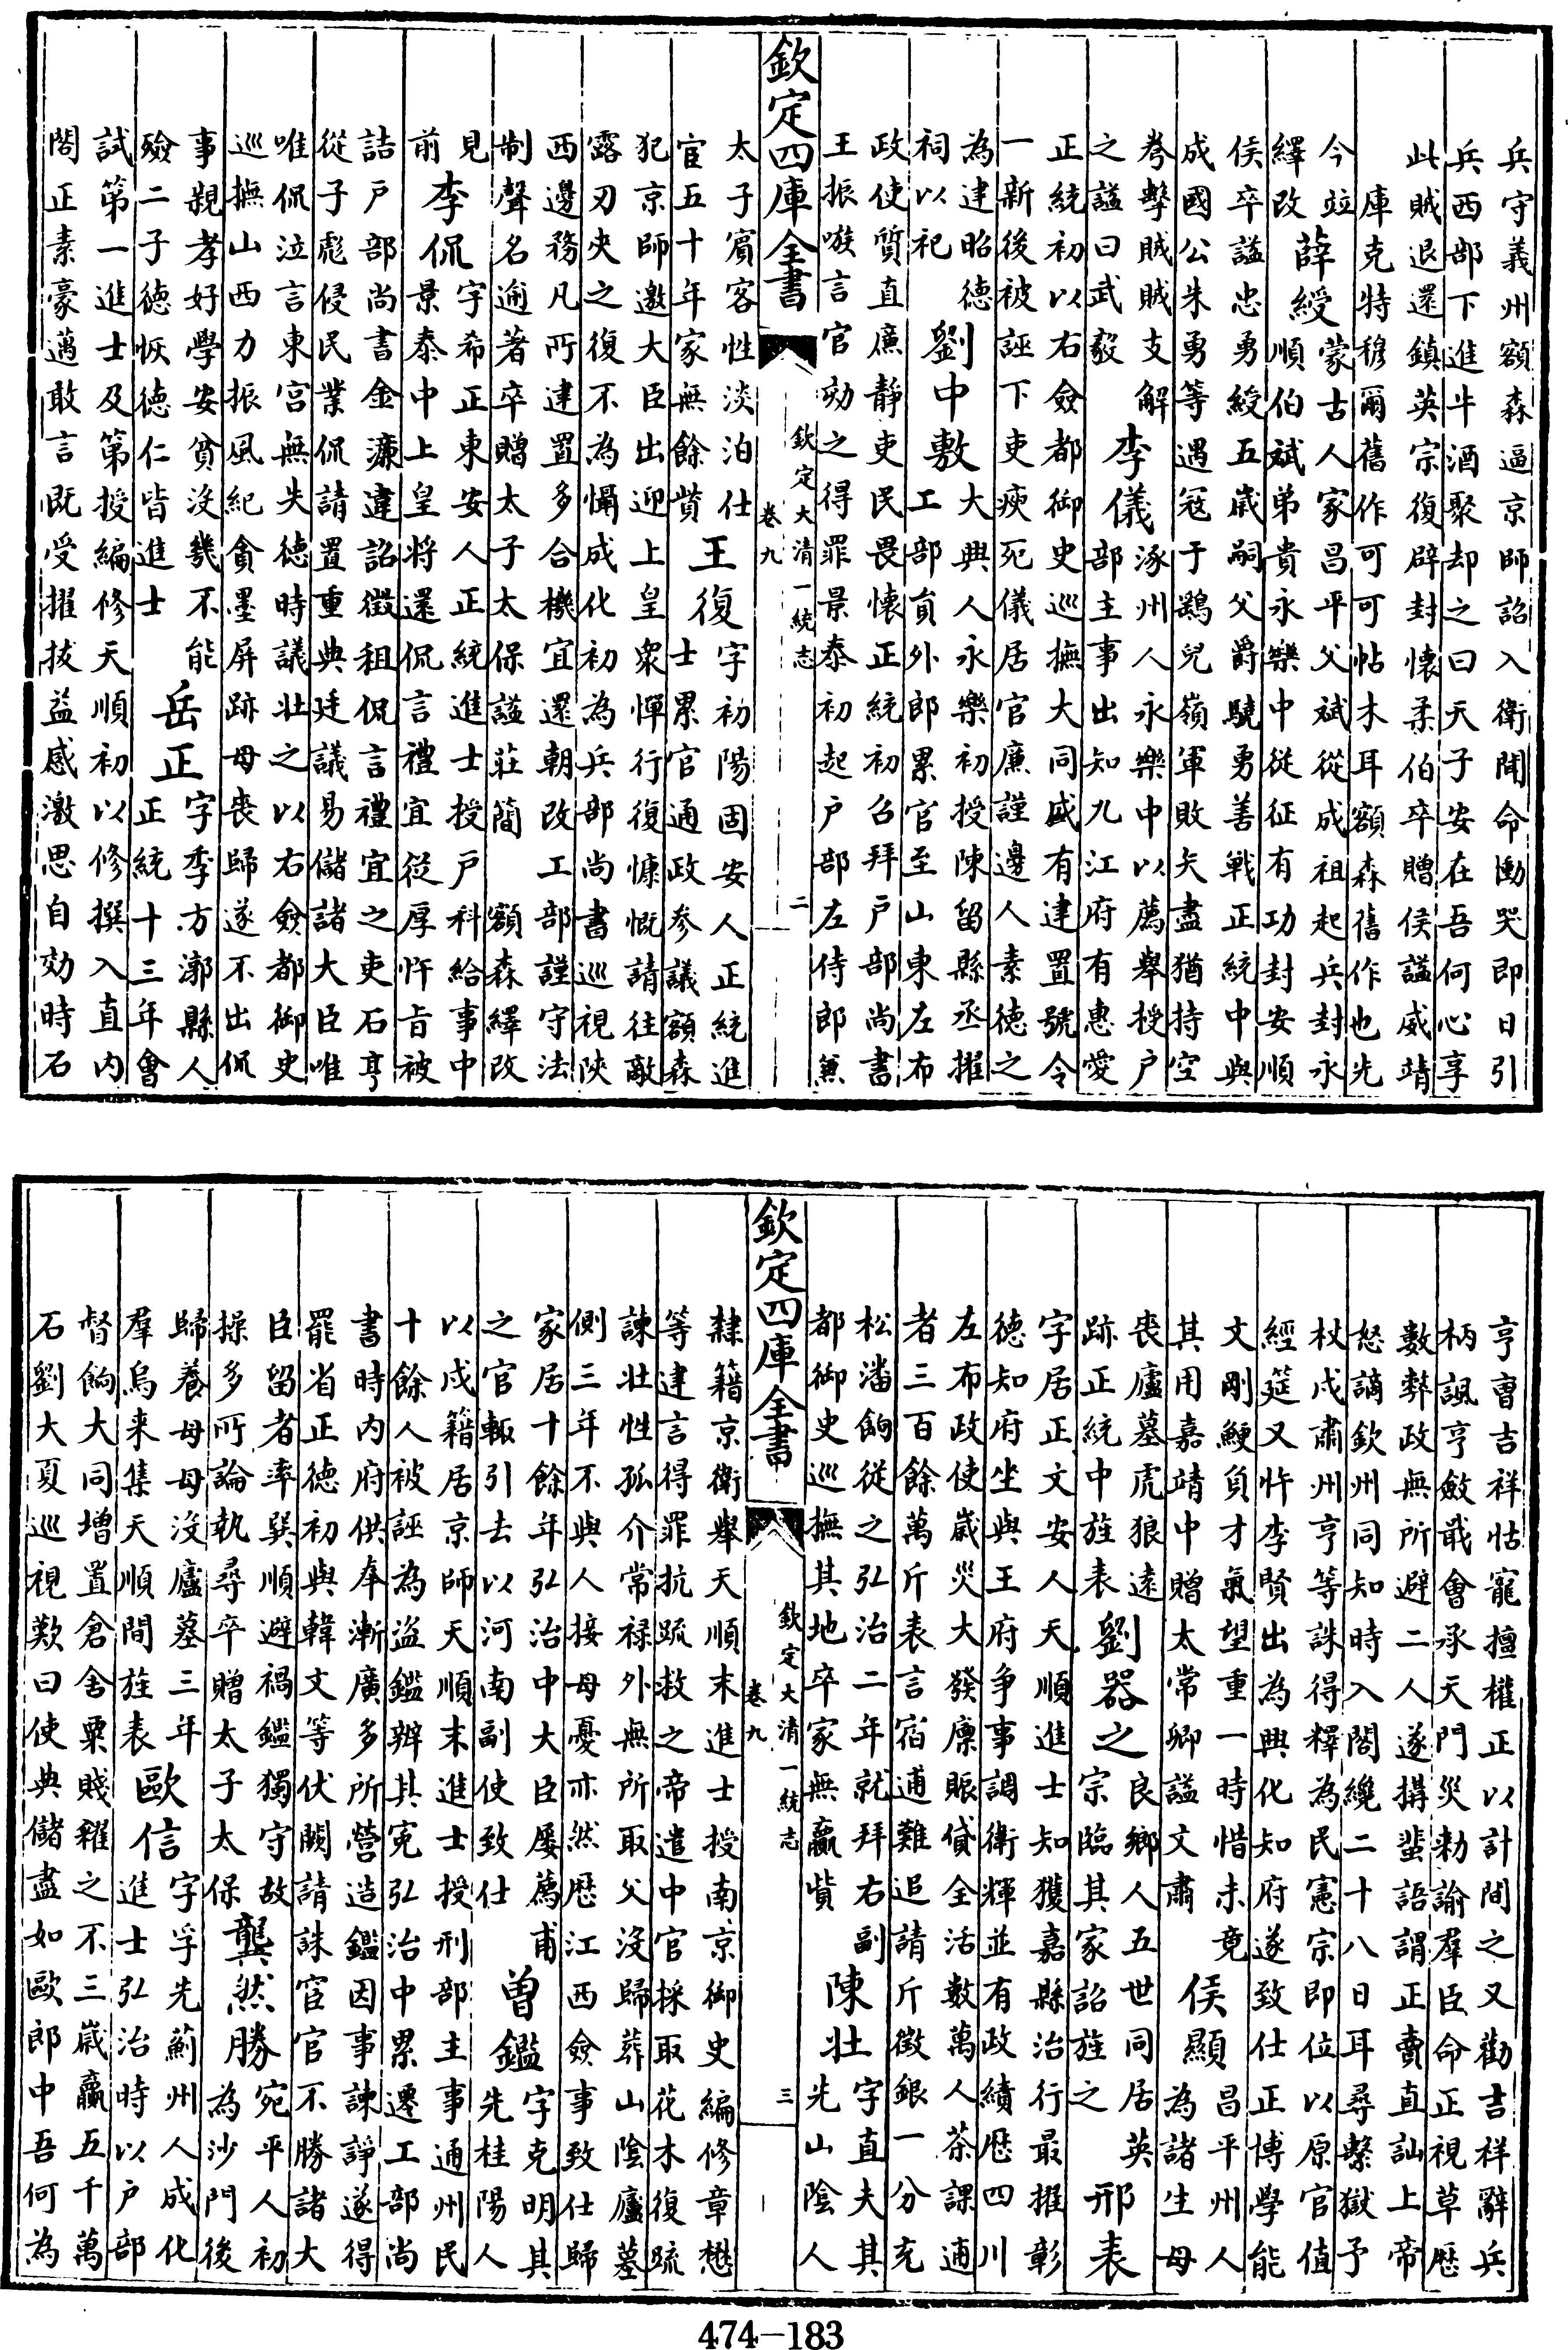 兵守義州額森逼京師詔入衛聞命慟哭即日引
兵西部下進牛酒聚却之曰天子安在吾何心享
此賊退還鎮英宗復辟封懷柔伯卒贈侯謚威靖
庫克特穆爾舊作可可帖木耳額森舊作也先
今竝
繹改
薛綬
蒙古人家昌平父斌從成祖起兵封永
順伯斌弟貴永樂中從征有功封安順
侯卒謚忠勇綬五歲嗣父爵驍勇善戰正統中與
成國公朱勇等遇冦于鷂兒嶺軍敗矢盡猶持空
弮擊賊賊支解
之謚曰武毅
李儀
涿州人永樂中以薦舉授户
部主事出知九江府有惠愛
正統初以右僉都御史巡撫大同盛有建置號令
一新後被誣下吏瘐死儀居官廉謹邊人素德之
為建昭德
祠以祀
劉中敷
大興人永樂初授陳留縣丞擢
工部員外郎累官至山東左布
政使質直廉静吏民畏懷正統初召拜户部尚書
王振嗾言官劾之得罪景泰初起户部左侍郎兼
欽定四庫全書
欽定大清一統志
卷九
二
太子賓客性淡泊仕
宦五十年家無餘貲
王復
字初陽固安人正統進
士累官通政參議額森
犯京師邀大臣出迎上皇衆憚行復慷慨請往敵
露刃夾之復不為懾成化初為兵部尚書巡視陝
西邊務凡所建置多合機宜還朝改工部謹守法
制聲名逾著卒贈太子太保謚莊簡 額森繹改
見
前
李侃
字希正東安人正統進士授户科給事中
景泰中上皇將還侃言禮宜從厚忤旨被
詰户部尚書金濂違詔徵租侃言禮宜之吏石亨
從子彪侵民業侃請置重典廷議易儲諸大臣唯
唯侃泣言東宮無失德時議壯之以右僉都御史
巡撫山西力振風紀貪墨屏跡母喪歸遂不出侃
事親孝好學安貧沒幾不能
殮二子德恢德仁皆進士
岳正
字季方漷縣人
正統十三年會
試第一進士及第授編修天順初以修撰入直内
閣正素豪邁敢言既受擢拔益感激思自効時石
亨曹吉祥怙寵擅權正以計間之又勸吉祥辭兵
柄諷亨斂戢會承天門災勅諭羣臣命正視草歷
數弊政無所避二人遂搆蜚語謂正賣直訕上帝
怒謫欽州同知時入閣纔二十八日耳尋繫獄予
杖戍肅州亨等誅得釋為民憲宗即位以原官值
經筵又忤李賢出為興化知府遂致仕正博學能
文剛鯁負才氣望重一時惜未竟
其用嘉靖中贈太常卿謚文肅
侯顯
昌平州人
為諸生母
喪廬墓虎狼遠
跡正統中旌表
劉器之
良鄉人五世同居英
宗臨其家詔旌之
邢表
字居正文安人天順進士知獲嘉縣治行最擢彰
德知府坐與王府爭事調衛輝並有政績歷四川
左布政使歲災大發廪賑貸全活數萬人茶課逋
者三百餘萬斤表言宿逋難追請斤徵銀一分充
松潘餉從之弘治二年就拜右副
都御史巡撫其地卒家無贏貲
陳壯
字直夫其
先山陰人
隸籍京衛舉天順末進士授南京御史編修章懋
等建言得罪抗疏救之帝遣中官採取花木復疏
諫壯性孤介常禄外無所取父沒歸葬山陰廬墓
側三年不與人接母憂亦然歷江西僉事致仕歸
家居十餘年弘治中大臣屢薦甫
之官輒引去以河南副使致仕
曾鑑
字克明其
先桂陽人
以戍籍居京師天順末進士授刑部主事通州民
十餘人被誣為盗鑑辨其冤弘治中累遷工部尚
書時内府供奉漸廣多所營造鑑因事諫諍遂得
罷省正德初與韓文等伏闕請誅宦官不勝諸大
臣留者率巽順避禍鑑獨守故
操多所論執尋卒贈太子太保
龔然勝
宛平人初
為沙門後
歸養母母沒廬墓三年
羣烏来集天順間旌表
歐信
字孚先薊州人成化
進士弘治時以户部
督餉大同增置倉舍粟賤糴之不三歲贏五千萬
石劉大夏巡視歎曰使典儲盡如歐郎中吾何為
欽定四庫全書
欽定大清一統志
卷九
三
474-183